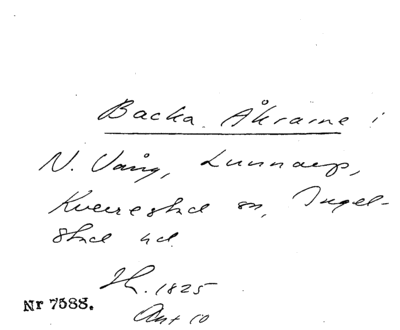 Backa Åkrarne i
N. Vång, Lunnarp,
Kverrestad sn, Ingel-
stad hd.
1825
Nr 7588. Akt 10